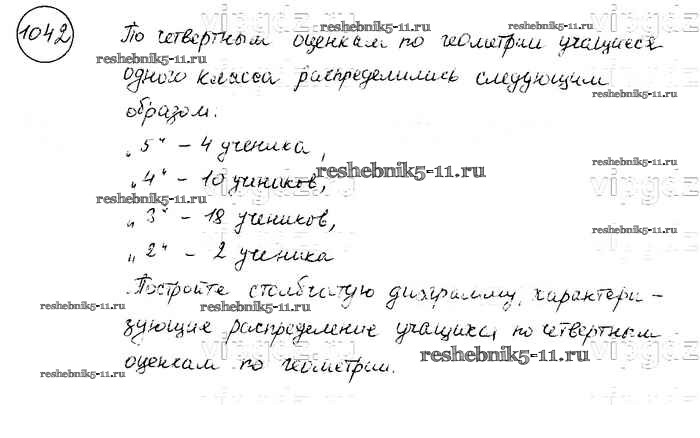 1042
По четвертным оценкам по геометрии учащиеся
reshebnik5-11.ru
reshebnik5-11.ru
одного класса распределились следующим
reshebnik5-11.ru
образом:
„5“ – 4 ученика,
reshebnik5-11.ru
reshebnik5-11.ru
„4“ – 10 учиников,
reshebnik5-11.ru
„3“ – 18 учеников,
reshebnik5-11.ru
„2“ – 2 ученика
Постройте столбчатую диаграмму, характери –
reshebnik5-11.ru
reshebnik5-11.ru
зующие распределение учащихся по четвертным
reshebnik5-11.ru
оценкам по геометрии.
reshebnik5-11.ru
vipgdz
vipgdz
vipgdz
vipgdz